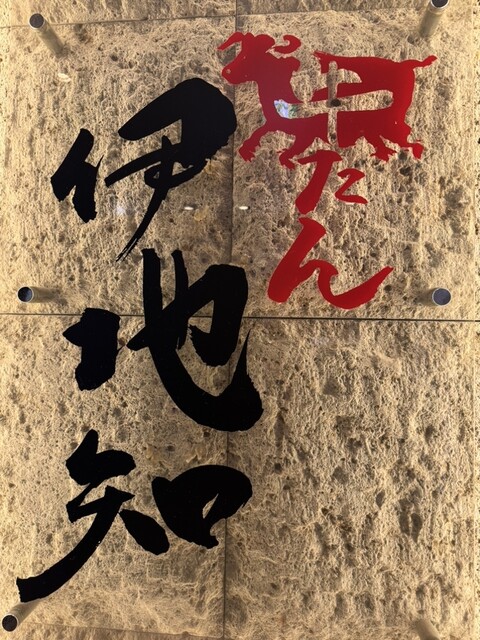 牛たん
伊地知